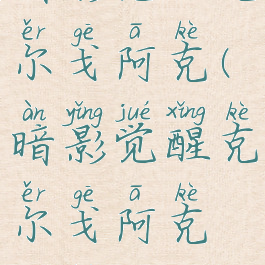 ěr gē ā kè
尔戈阿克(
àn yǐng jué xǐng kè
暗影觉醒克
ěr gē ā kè
尔戈阿克